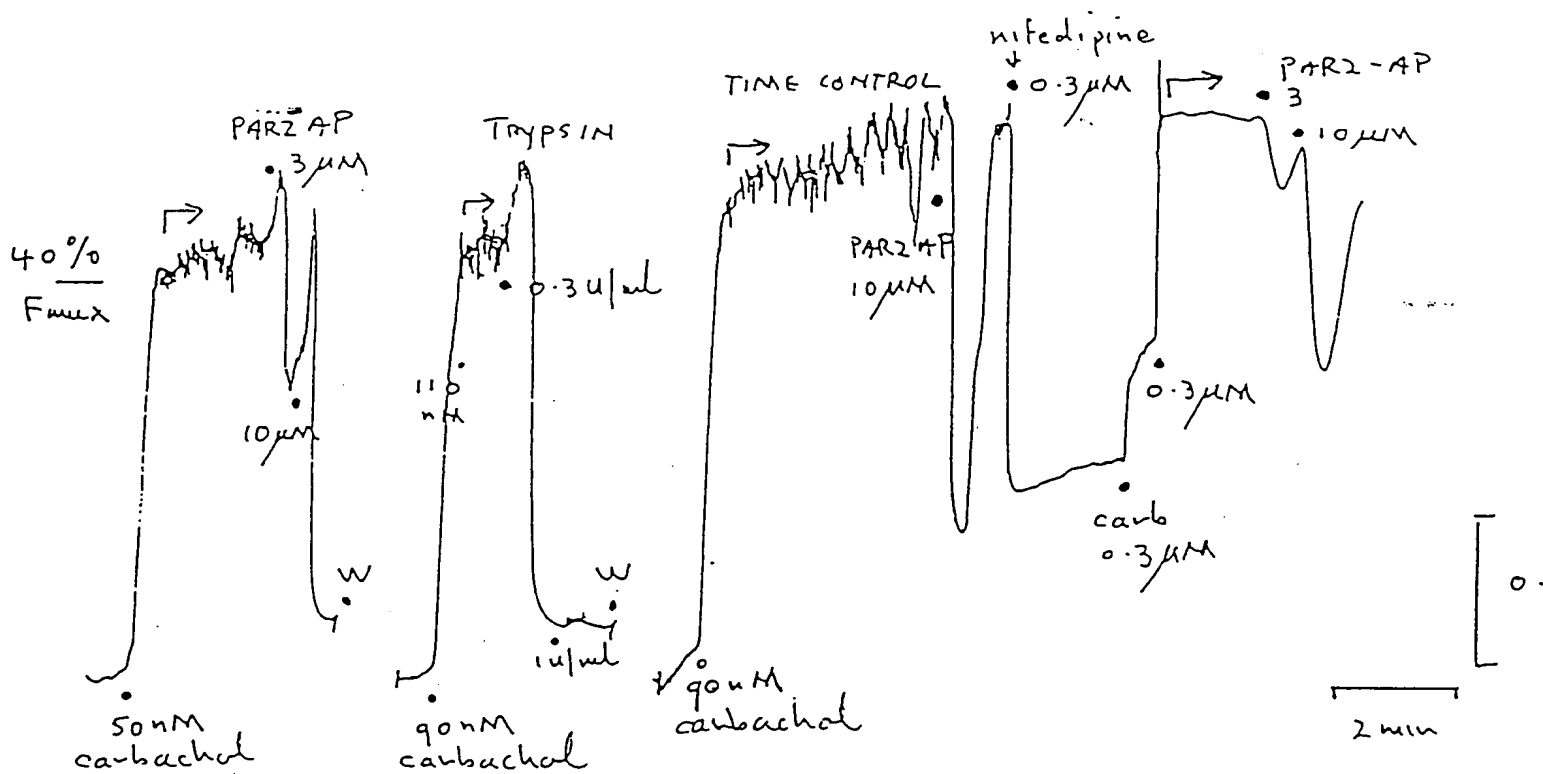 40%
Fmax
PAR2 AP
3 µM
10 µM
W
50 nM
carbachol
TRYPSIN
0.3 u/ml
110
nM
W
1u/ml
90 nM
carbachol
TIME CONTROL
PAR2 AP
10 µM
90 nM
carbachol
nifedipine
0.3 µM
carb
0.3 µM
0.3 µM
PAR2-AP
3
10 µM
0.
2 min